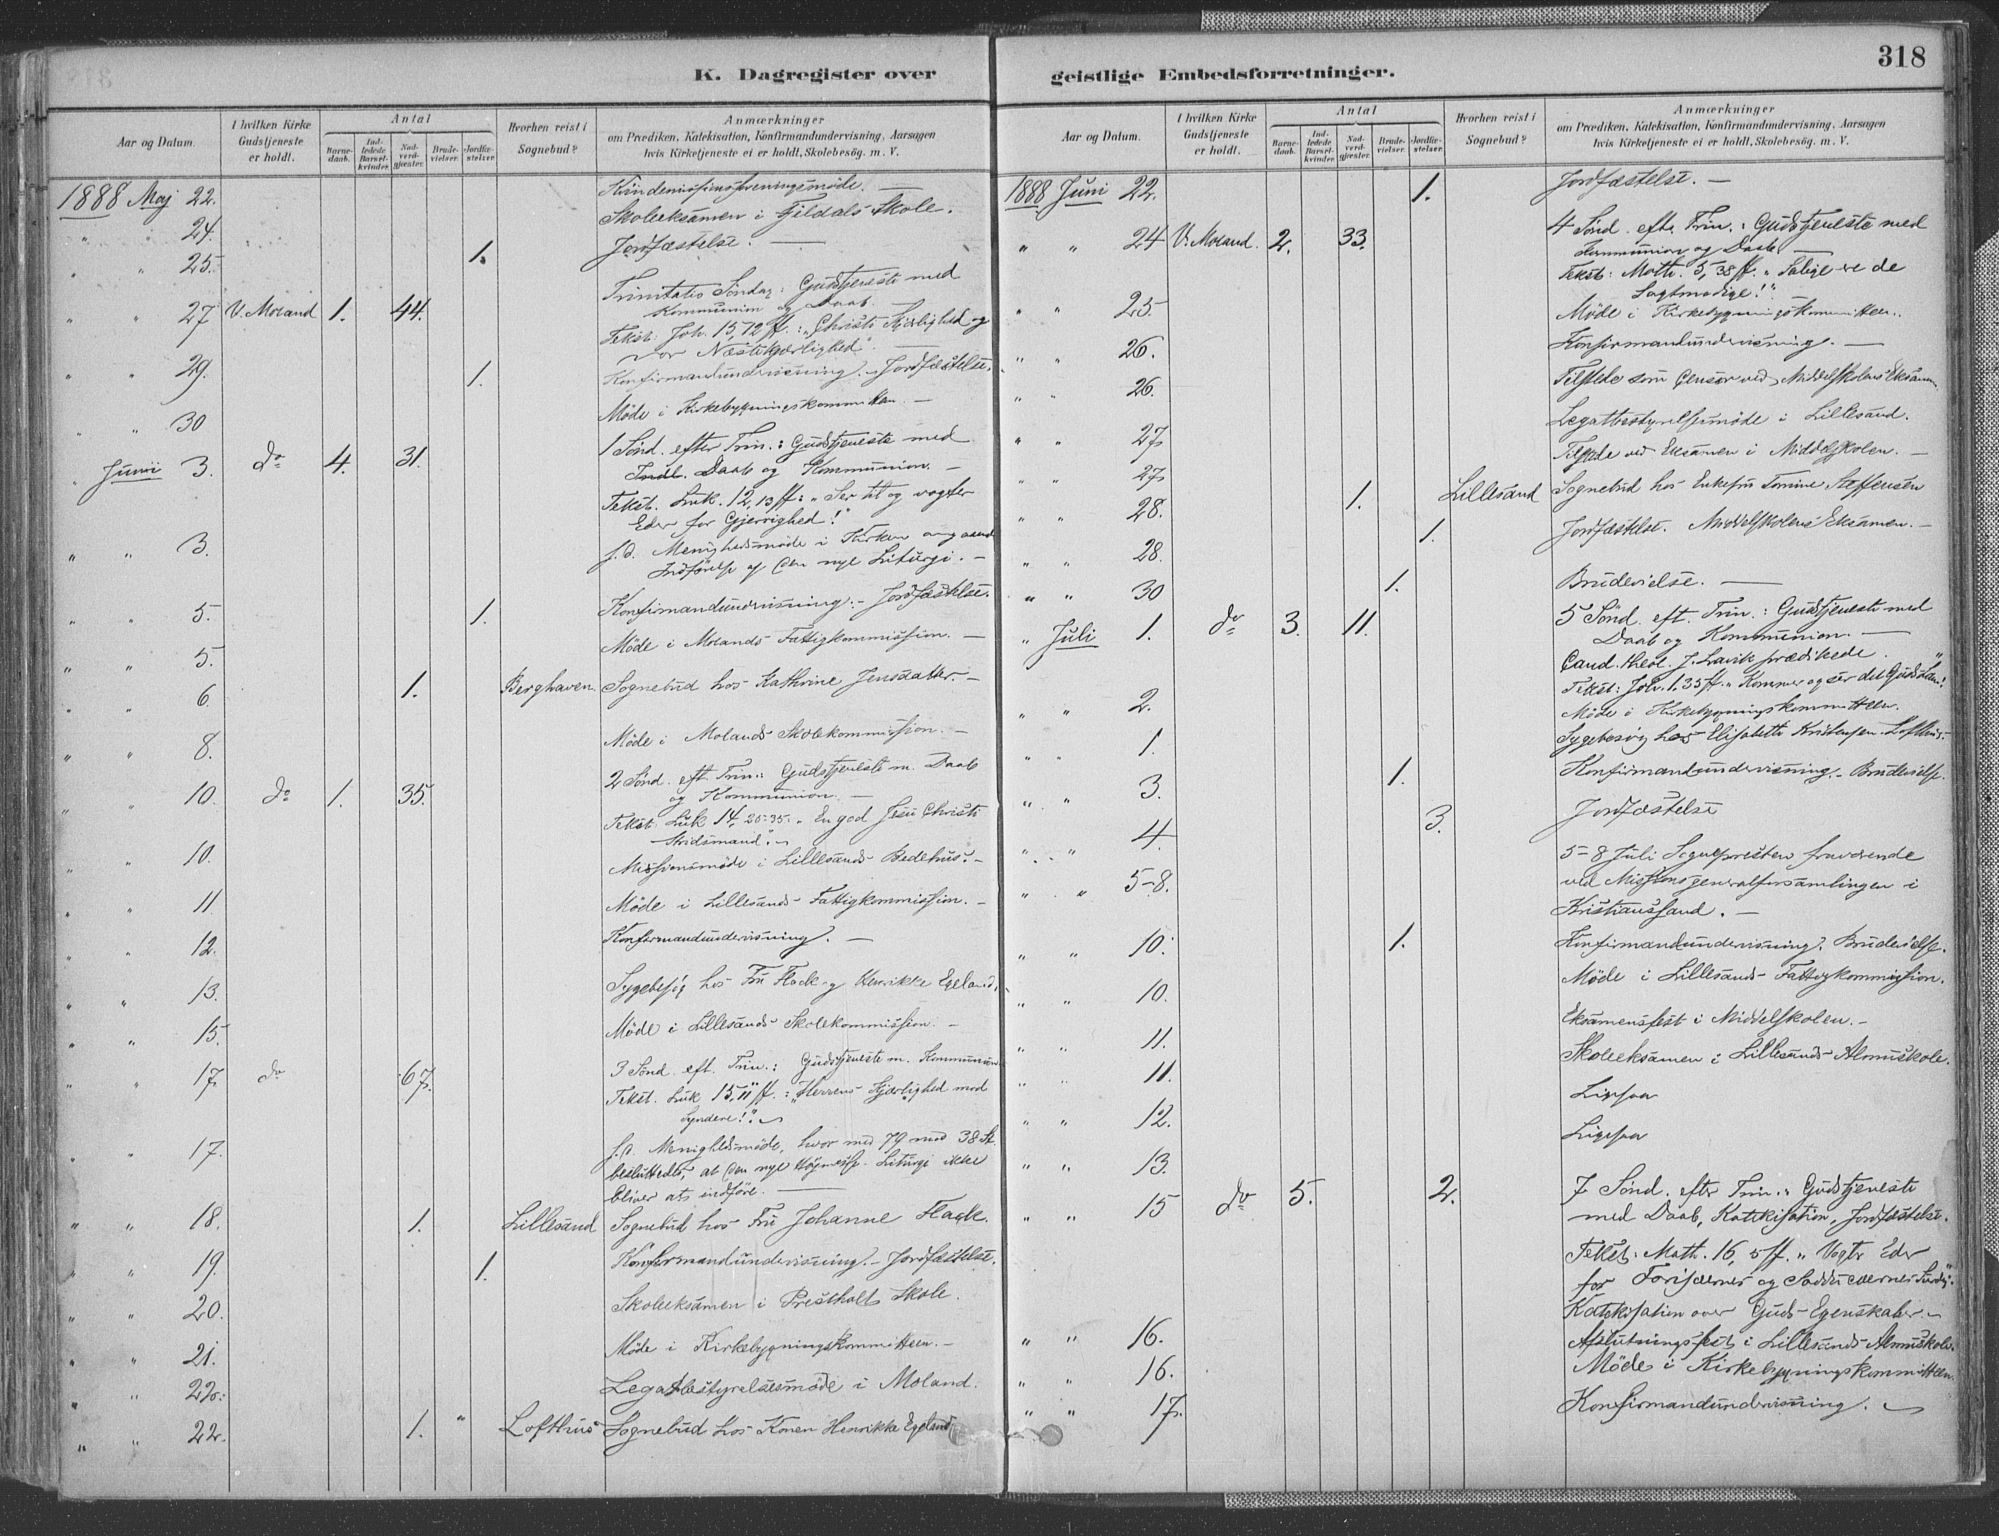 318
K. Dagregister over
geistlige Embedsforretninger.
Aar og Datum.
I hvilken Kirke Gudstjeneste er holdt.
Antal
Barnedaab.
Indledede Barselkvinder.
Nadverdgjester.
Brudevielser.
Jordfæstelser.
Hvorhen reist i Sognebud?
Anmærkninger
om Prædiken, Katekisation, Konfirmandundervisning, Aarsagen
hvis Kirketjeneste ei er holdt, Skolebesög. m. V.
1888 Maj 22. Kvindemissionsforeningsmøde. —
" " 24. Skoleeksamen i Fjeldals Skole.
" " 25. 1. Jordfæstelse. —
" " 27 V. Moland 1. 44. Trinitatis Søndag: Gudstjeneste med
Kommunion og Daab.
Tekst. Joh. 15,12 ff.: "Christi Kjærlighed og
vor Næstekjærlighed".
" " 29. 1. Konfirmandundervisning. - Jordfæstelse.
" " 30 Møde i Kirkebygningskommitteen. —
" Juni 3. do 4. 31. 1 Sønd. efter Trin.: Gudstjeneste med
Daab og Kommunion. —
Tekst. Luk. 12,13 ff: "Ser til og vogter
Eder for Gjerrighed!"
" " 3. s.d. Menighedsmøde i Kirken ang aaende
Indførelse af den nye Liturgi. —
" " 5. 1. Konfirmandundervisning. - Jordfæstelse.
" " 5. Møde i Molands Fattigkommission. —
" " 6. 1. Berghaven. Sognebud hos Kathrine Jensdatter. —
" " 8. Møde i Molands Skolekommission. —
" " 10. do 1. 35. 2 Sønd. eft. Trin.: Gudstjeneste m. Daab
og Kommunion. —
Tekst: Luk 14, 25-35. "En god Jesu Christi
Stridsmand".
" " 10. Missionsmøde i Lillesands Bedehus. —
" " 11. Møde i Lillesands Fattigkommission. —
" " 12. Konfirmandundervisning. —
" " 13. Sygebesøg hos Fru Flack og Henrikke Egeland.
" " 15. Møde i Lillesands Skolekommission. —
" " 17. do 67. 3 Sønd. eft. Trin.: Gudstjeneste m. Kommunion
Tekst. Luk 15, 11 ff.: "Herrens Kjærlighed mod
Syndere!".
" " 17. s.d. Menighedsmøde, hvor med 79 mod 38 St.
besluttedes, at den nye Høimesse-Liturgi ikke
bliver at indføre. —
" " 18. 1. Lillesand Sognebud hos Fru Johanne Flack.
" " 19. 1. Konfirmandundervisning. - Jordfæstelse.
" " 20. Skoleeksamen i Prestholt Skole.
" " 21. Møde i Kirkebygningskommitteen. —
" " 22. Legatbestyrelsesmøde i Moland.
" " 22. 1. " Lofthus Sognebud hos Konen Henrikke Egeland
Aar og Datum.
I hvilken Kirke Gudstjeneste er holdt.
Antal
Barnedaab.
Indledede Barselkvinder.
Nadverdgjester.
Brudevielser.
Jordfæstelser.
Hvorhen reist i Sognebud?
Anmærkninger
om Prædiken, Katekisation, Konfirmandundervisning, Aarsagen
hvis Kirketjeneste ei er holdt, Skolebesög. m. V.
1888 Juni 22. 1. Jordfæstelse. —
" " 24 V. Moland. 2. 33. 4 Sønd. efter Trin.: Gudstjeneste med
Kommunion og Daab. —
Tekst: Matth. 5,38 ff. "Salige ere de
Sagtmodige!".
" " 25. Møde i Kirkebygningskommitteen.
" " 26. Konfirmandundervisning. —
" " 26. Tilstede som Censor ved Middelskolens Eksamen
" " 27. Legatbestyrelsesmøde i Lillesand.
" " 27. Tilstede ved Eksamen i Middelskolen. —
" " 28. 1. Lillesand Sognebud hos Enkefru Tomine Steffensen
" " 28. 1. Jordfæstelse. Middelskolens Eksamen. —
" " 30 1. Brudevielse. —
" Juli 1. do 3. 11. 5 Sønd. eft. Trin.: Gudstjeneste med
Daab og Kommunion. —
Cand. theol. J. Lavik prædikede.
Tekst: Joh. 1, 35 ff. "Kommer og ser det Guds Lam!"
" " 2. Møde i Kirkebygningskommitteen.
" " 1. Sygebesøg hos Elisabeth Kristensen. Lofthus. —
" " 3. 1. Konfirmandundervisning. - Brudevielse.
" " 4. 3. Jordfæstelse
" " 5-8. 5-8 Juli Sognepresten fraværende
ved Missionsgeneralforsamlingen i
Kristianssand. —
" " 10. 1. Konfirmandundervisning. Brudevielse.
" " 10. Møde i Lillesands Fattigkommission.
" " 11. Eksamensfest i Middelskolen. —
" " 11. Skoleeksamen i Lillesands Almuskole.
" " 12. Ligesaa
" " 13. Ligesaa
" " 15 do 5. 2. 7 Sønd. efter Trin.: Gudstjeneste
med Daab, Katekisation, Jordfæstelse.
Tekst: Matth. 16, 5 ff. "Vogter Eder
for Farisæernes og Sadducæernes Surdeig".
Katekisation over Guds Egenskaber. —
" " 16. Afslutningsfest i Lillesands Almuskole.
" " 16. Møde i Kirkebygningskommitteen.
" " 17. Konfirmandundervisning. —